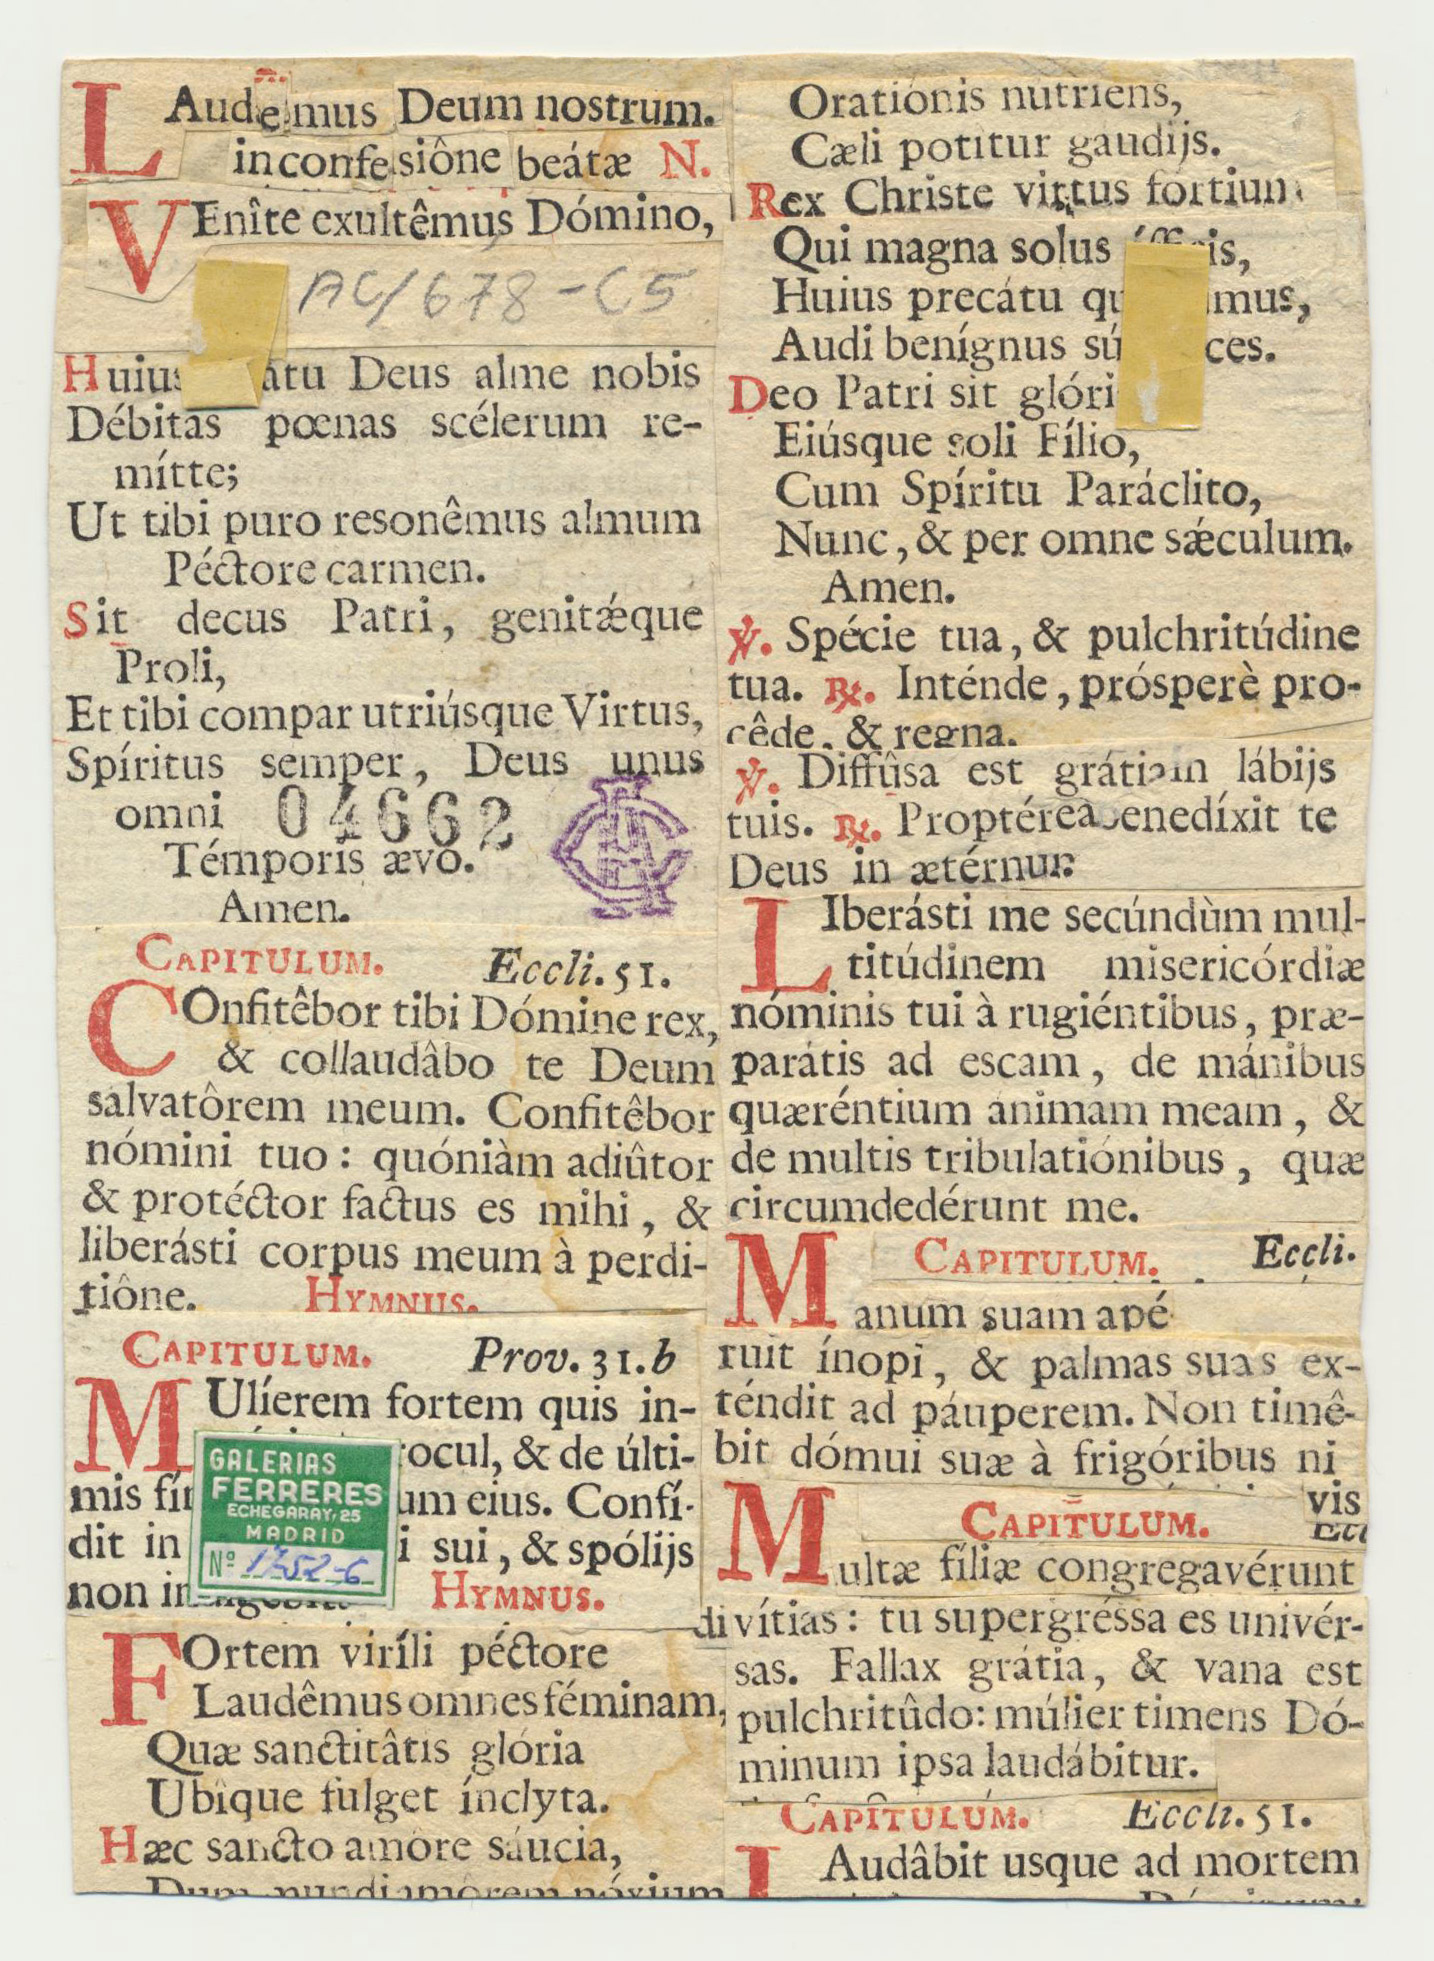 LAudemus Deum nostrum.
in confessiône beátæ N.
VEnîte exultêmus Dómino,
AC/678-C5
Huius átu Deus alme nobis
Débitas pœnas scélerum re-
mítte;
Ut tibi puro resonêmus almum
Péctore carmen.
Sit decus Patri, genitǽque
Proli,
Et tibi compar utriúsque Virtus,
Spíritus semper, Deus unus
omni
04662
Témporis ævo.
Amen.
CAPITULUM. Eccli. 51.
COnfitêbor tibi Dómine rex,
& collaudâbo te Deum
salvatôrem meum. Confitêbor
nómini tuo: quóniàm adiûtor
& protéctor factus es mihi, &
liberásti corpus meum à perdi-
tiône. HYMNUS.
CAPITULUM. Prov. 31. b
MUlíerem fortem quis in-
ocul, & de últi-
mis fin um eius. Confí-
dit in i sui, & spólijs
non HYMNUS.
GALERIAS
FERRERES
ECHEGARAY, 25
MADRID
Nº 1752-6
FOrtem viríli péctore
Laudêmus omnes féminam,
Quæ sanctitâtis glória
Ubîque fulget ínclyta.
Hæc sancto amóre sáucia,
Dum mundi amôrem nóxium
Oratiónis nutriens,
Cæli potitur gaudijs.
Rex Christe virtus fórtium
Qui magna solus is,
Huius precátu qu mus,
Audi benígnus sú ces.
Deo Patri sit glóri
Eiúsque soli Fílio,
Cum Spíritu Paráclito,
Nunc, & per omne sǽculum.
Amen.
℣. Spécie tua, & pulchritúdine
tua. ℞. Inténde, próspere pro-
cêde, & regna.
℣. Diffûsa est grátia in lábijs
tuis. ℞. Proptérea benedíxit te
Deus in ætérnum
LIberásti me secúndùm mul-
titúdinem misericórdiæ
nóminis tui à rugiéntibus, præ-
parátis ad escam, de mánibus
quæréntium animam meam, &
de multis tribulatiónibus, quæ
circumdedérunt me.
CAPITULUM. Eccli.
Manum suam apé
ruit ínopi, & palmas suas ex-
téndit ad páuperem. Non timê-
bit dómui suæ à frigóribus ni
vis
CAPITULUM.
Multæ fíliæ congregavérunt
divítias: tu supergréssa es univér-
sas. Fallax grátia, & vana est
pulchritûdo: múlier timens Dó-
minum ipsa laudábitur.
CAPITULUM. Eccli. 51.
LAudâbit usque ad mortem